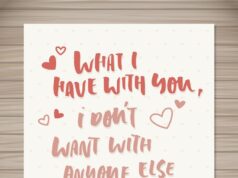 WHAT I
HAVE WITH YOU,
i DON'T
WANT WITH
ANYONE ELSE